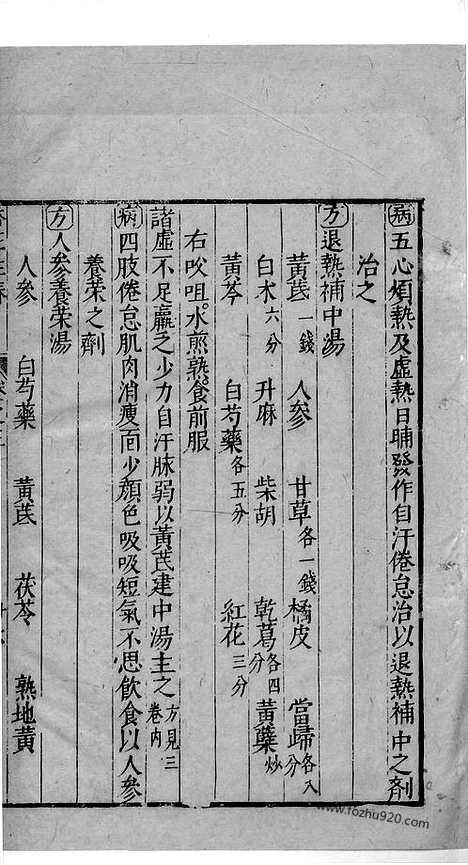 病 五心煩熱及虛熱日晡發作自汗倦怠治以退熱補中之劑
治之
方 退熱補中湯
黃芪一錢 人參 甘草各一錢 橘皮 當歸各八分
白朮六分 升麻 柴胡 乾葛各四分 黃蘗炒
黃芩 白芍藥各五分 紅花三分
右㕮咀水煎熟食前服
諸虛不足羸乏少力自汗脉弱以黃芪建中湯主之方見三卷內
病 四肢倦怠肌肉消瘦面少顏色吸吸短氣不思飲食以人參
養榮之劑
方 人參養榮湯
人參 白芍藥 黃芪 茯苓 熟地黃
www.fozhu920.com